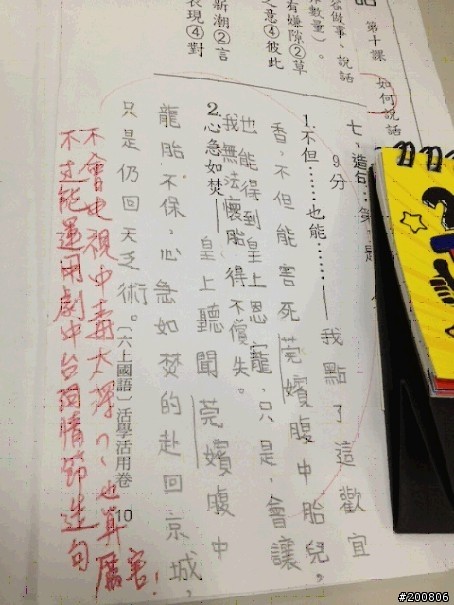 第十課 如何說話
做事、說話
數量）。
有嫌隙②草
之意④彼此
新潮②言
表現④對
七、造句：
9分
1.不但……也能……——我點了這歡宜
香，不但能害死莞嬪腹中胎兒，
也能得到皇上恩寵，只是，會讓
我無法懷胎，得不償失。
2.心急如焚——皇上聽聞莞嬪腹中
龍胎不保，心急如焚的赴回京城，
只是仍回天乏術。
〔六上國語〕活學活用卷 10
不會电視中毒太深ㄇ、也算厲害！
不过能運用劇中台詞情節造句
#200806